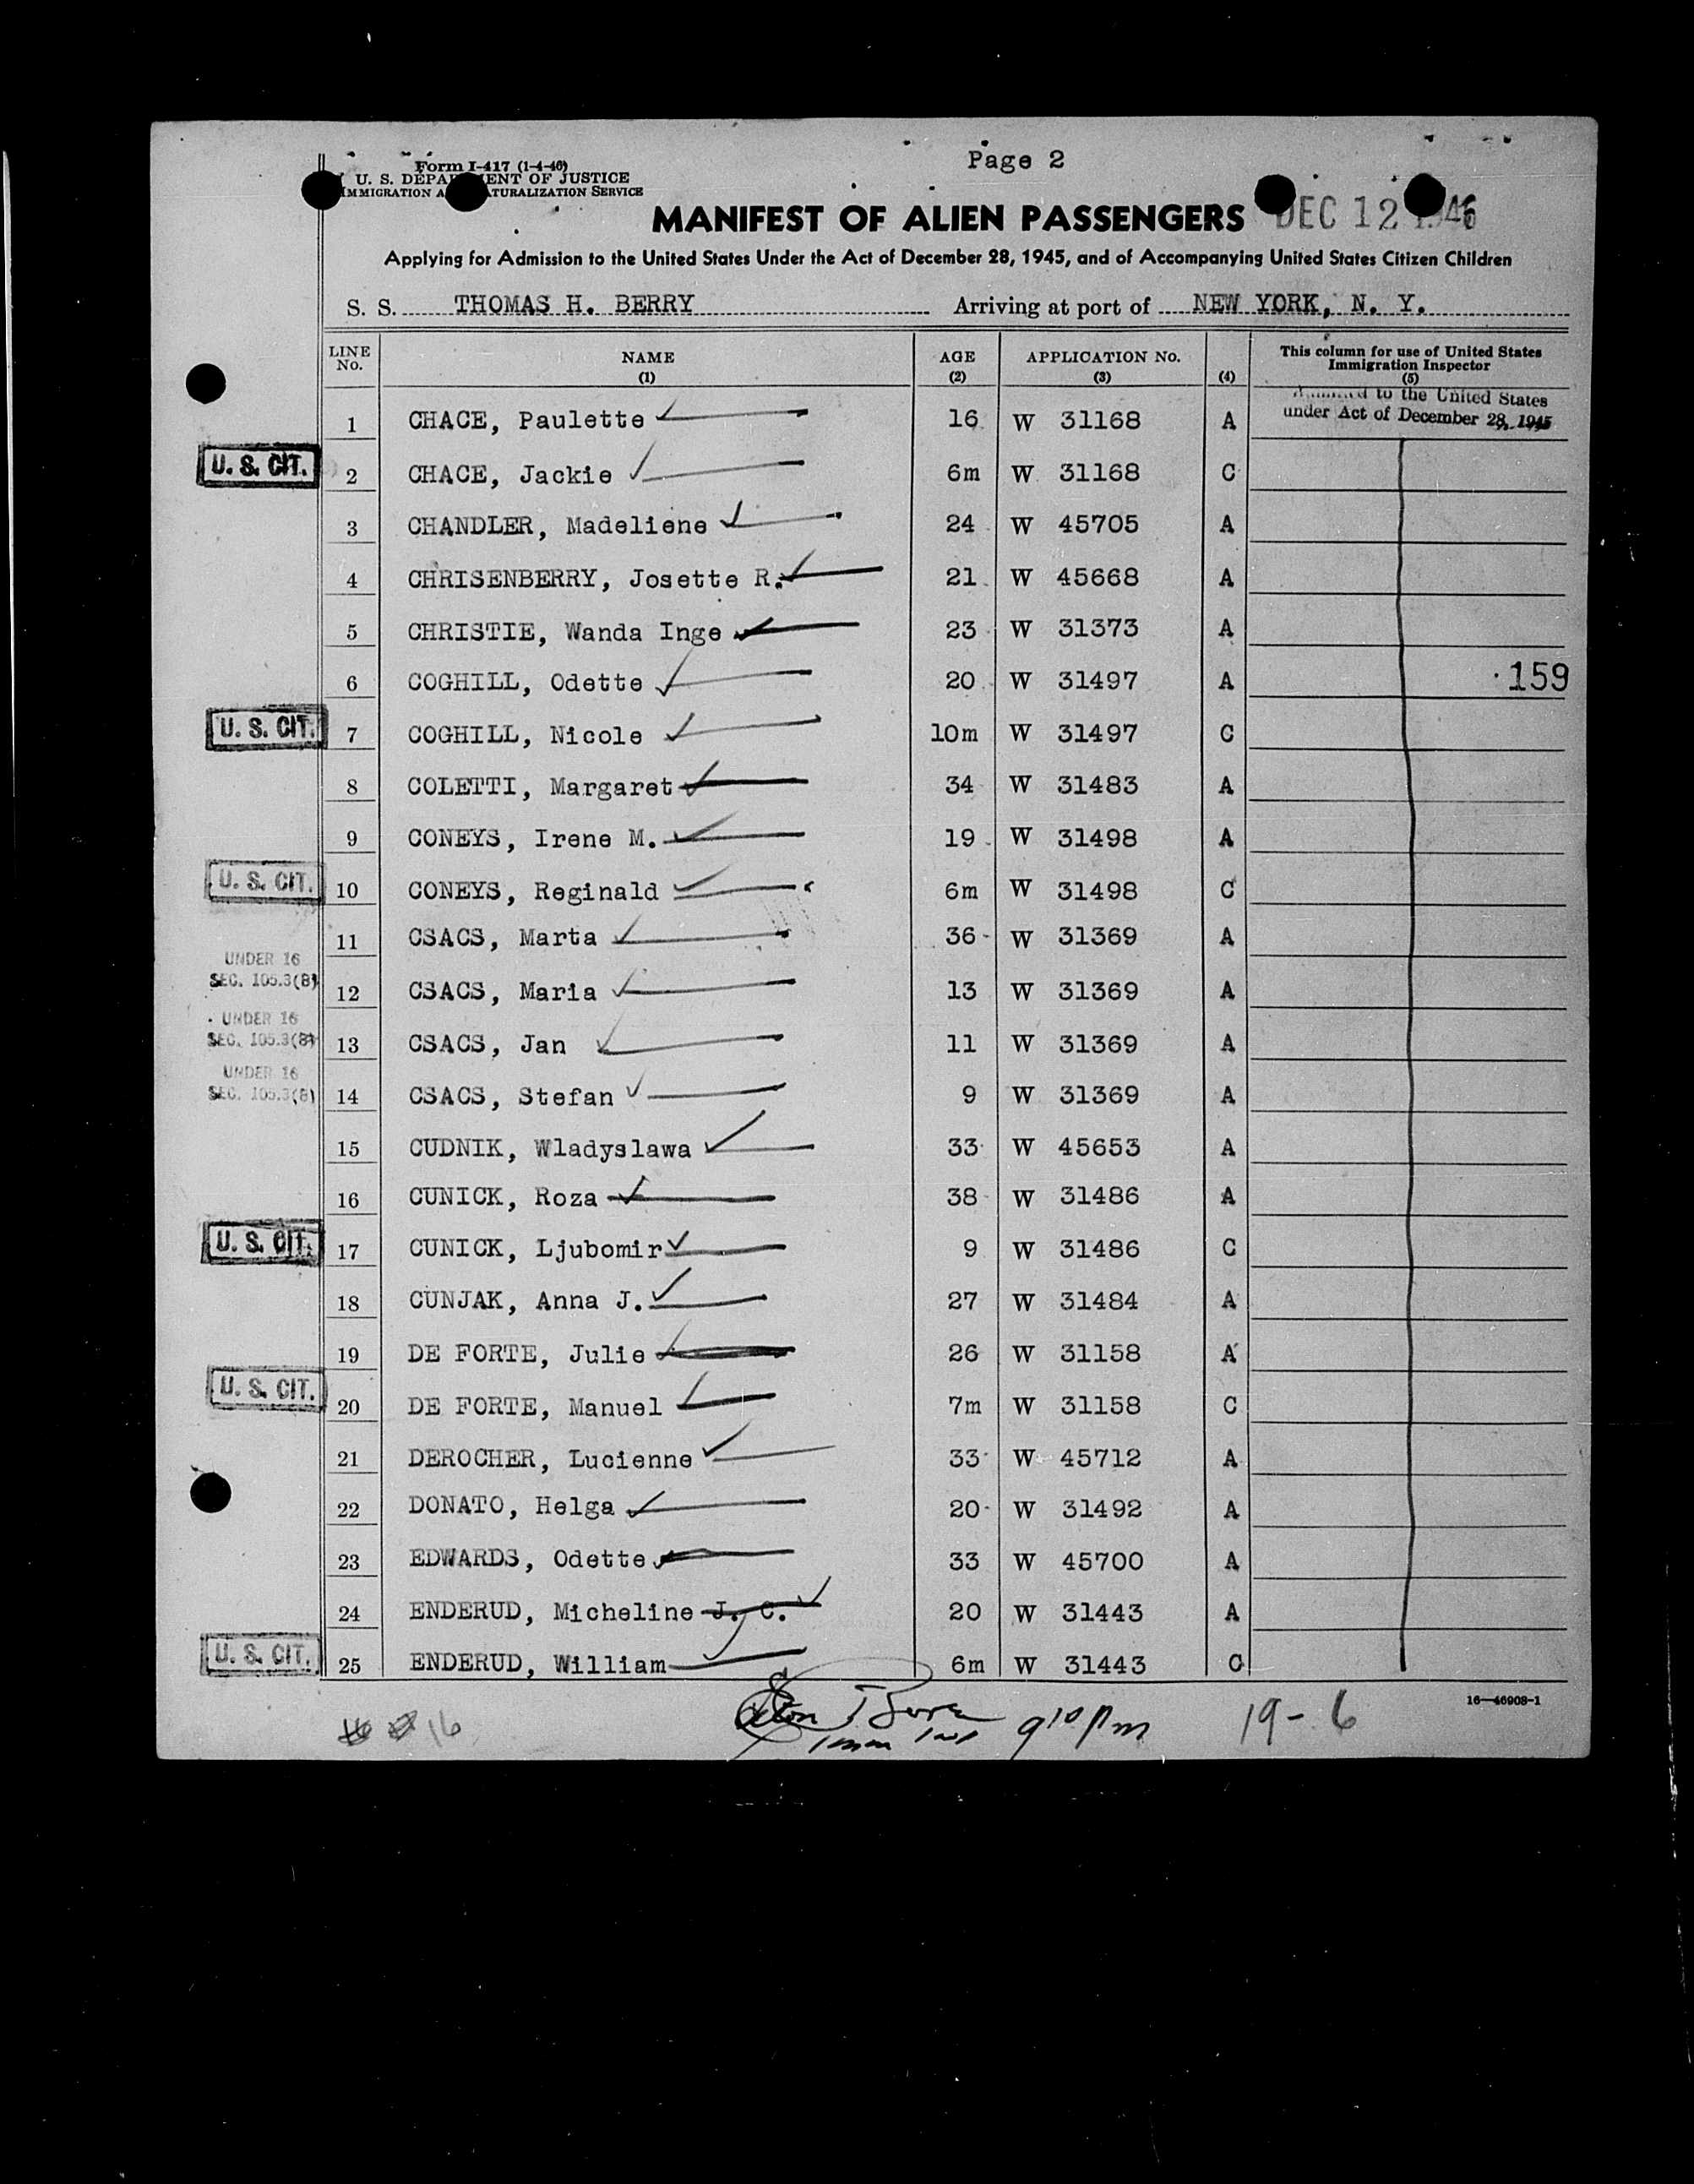 Page 2
Form I-417 (1-4-46)
U. S. DEPA ENT OF JUSTICE
IMMIGRATION A TURALIZATION SERVICE
DEC 12 1946
MANIFEST OF ALIEN PASSENGERS
Applying for Admission to the United States Under the Act of December 28, 1945, and of Accompanying United States Citizen Children
S. S. THOMAS H. BERRY Arriving at port of NEW YORK, N. Y.
LINE No. NAME (1) AGE (2) APPLICATION No. (3) (4) This column for use of United States Immigration Inspector (5)
to the United States
under Act of December 28, 1945
1 CHACE, Paulette 16 W 31168 A
U. S. CIT. 2 CHACE, Jackie 6m W 31168 C
3 CHANDLER, Madeliene 24 W 45705 A
4 CHRISENBERRY, Josette R. 21 W 45668 A
5 CHRISTIE, Wanda Inge 23 W 31373 A
6 COGHILL, Odette 20 W 31497 A 159
U. S. CIT. 7 COGHILL, Nicole 10m W 31497 C
8 COLETTI, Margaret 34 W 31483 A
9 CONEYS, Irene M. 19 W 31498 A
U. S. CIT. 10 CONEYS, Reginald 6m W 31498 C
11 CSACS, Marta 36 W 31369 A
UNDER 16
SEC. 105.3(B) 12 CSACS, Maria 13 W 31369 A
UNDER 16
SEC. 105.3(B) 13 CSACS, Jan 11 W 31369 A
UNDER 16
SEC. 105.3(B) 14 CSACS, Stefan 9 W 31369 A
15 CUDNIK, Wladyslawa 33 W 45653 A
16 CUNICK, Roza 38 W 31486 A
U. S. CIT. 17 CUNICK, Ljubomir 9 W 31486 C
18 CUNJAK, Anna J. 27 W 31484 A
19 DE FORTE, Julie 26 W 31158 A
U. S. CIT. 20 DE FORTE, Manuel 7m W 31158 C
21 DEROCHER, Lucienne 33 W 45712 A
22 DONATO, Helga 20 W 31492 A
23 EDWARDS, Odette 33 W 45700 A
24 ENDERUD, Micheline J. C. 20 W 31443 A
U. S. CIT. 25 ENDERUD, William 6m W 31443 C
16—46908-1
16 9 10 pm 19 - 6